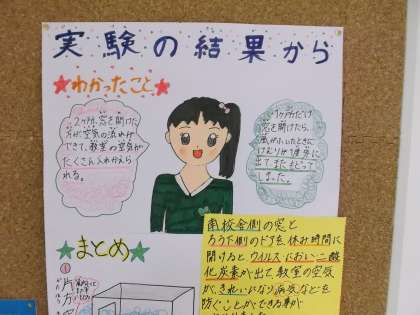 実験の結果から
★わかったこと★
2ヶ所、窓を開けた
方が空気の流れが
できて、教室の空気が
たくさん入れかえら
れる。
1ヶ所だけ
窓を開けたら、
風がふいたときに
けむりが1度外に
出てまたもどって
しまった。
★まとめ★
南校舎側の窓と
ろう下側のドアを休み時間に
開けるとウイルスにおい二酸
化炭素が出て、教室の空気
が、きれいになり病気などを
防ぐことができる事が
①
片方